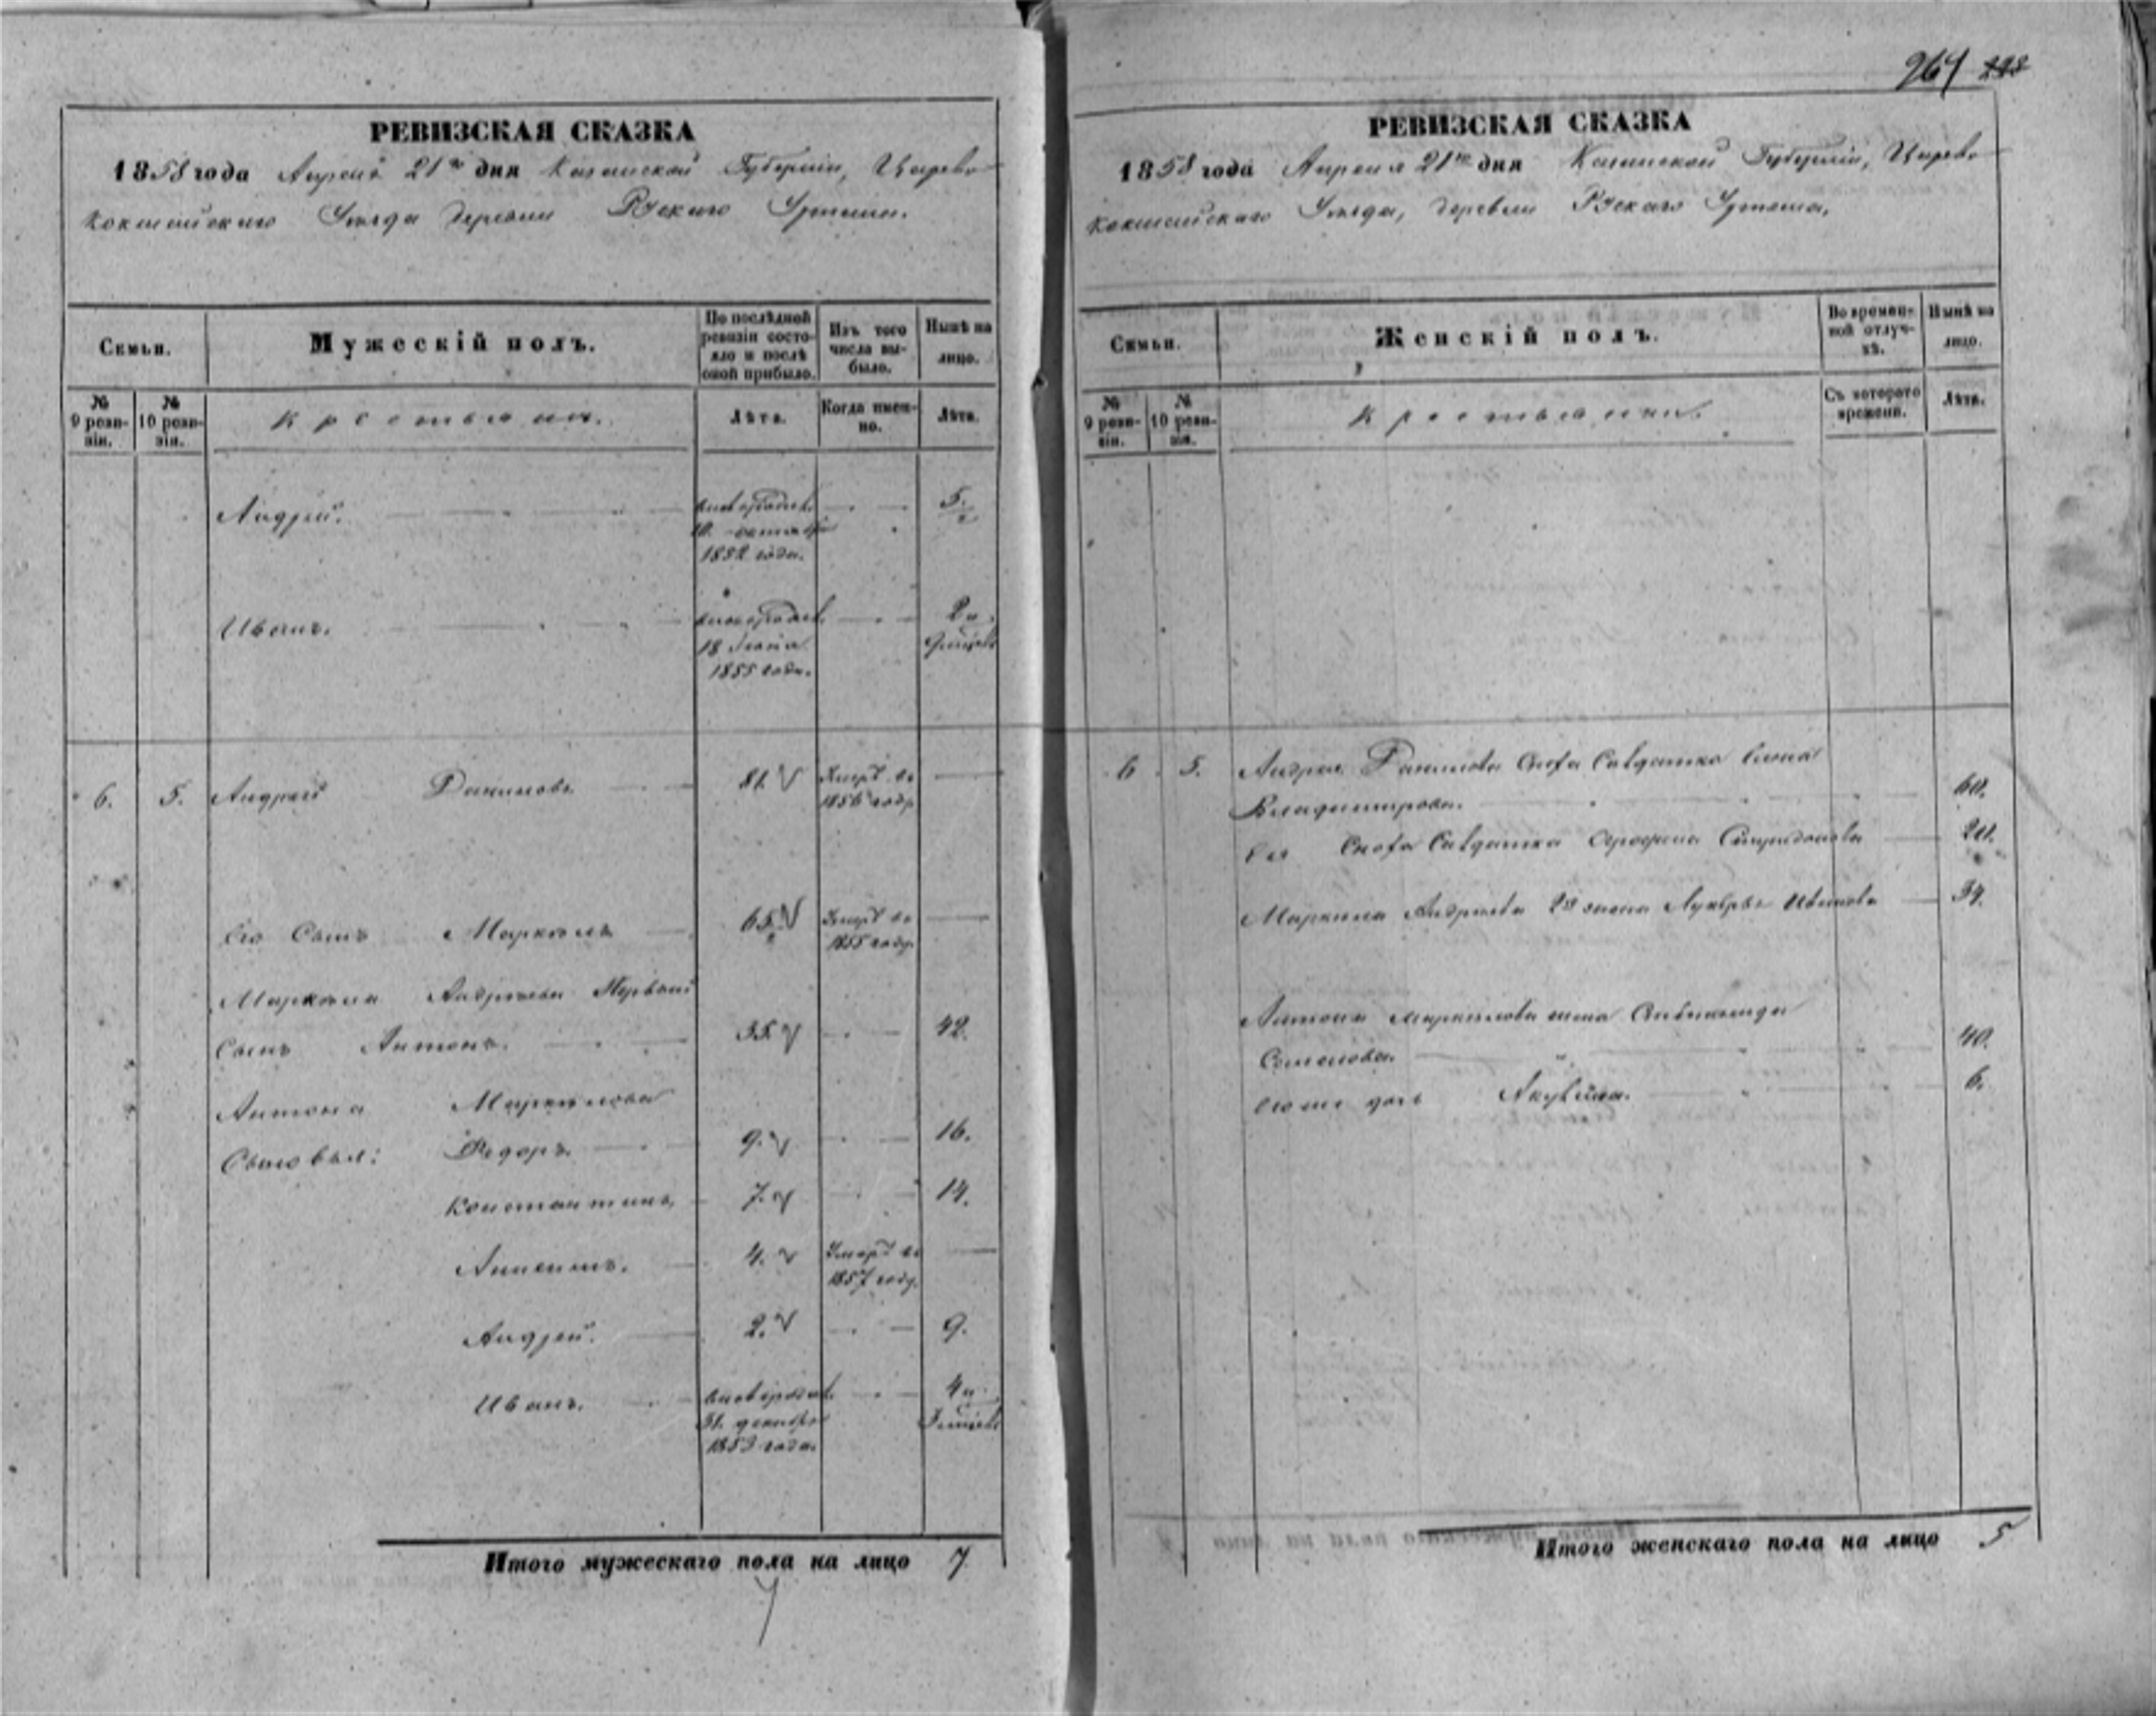 264 222
РЕВИЗСКАЯ СКАЗКА
1858 года Апреля 21го дня Казанской Губернии, Царево-
кокшайскаго Уезда деревни Рускаго Уртема.
Семьи.
Мужескій полъ.
По послѣдной ревизіи состояло и послѣ оной прибыло.
Изъ того числа выбыло.
Нынѣ на лицо.
№ 9 ревизіи.
№ 10 ревизіи.
Крестьяне.
Лѣта.
Когда именно.
Лѣта.
Андрей. 5.
октября
1852 года.
Иванъ. 2 и
18 Іюня 9 месяц
1855 года.
6. 5. Андрей Данилов 81. Умеръ въ
1856 году
Его Сынъ Маркелъ 65. Умеръ въ
1855 году
Маркела Андреева Первый
Сынъ Антонъ. 35. 42.
Антона Маркелова
Сыновья: Федоръ. 9. 16.
Константинъ 7. 14.
4. Умеръ въ
1857 году.
Андрей. 2. 9.
Иванъ. 4 и
31 декабря 3 месяц
1853 года.
Итого мужескаго пола на лицо 7
7
РЕВИЗСКАЯ СКАЗКА
1858 года Апреля 21го дня Казанской Губернии, Царево-
кокшайскаго Уезда, деревни Рускаго Уртема,
Семьи.
Женскій полъ.
Во временной отлучкѣ.
Нынѣ на лицо.
№ 9 ревизіи.
№ 10 ревизіи.
Крестьянки.
Съ котораго времени.
Лѣта.
6 5. Андрея Данилова Сноха Салдатка
Владимирова. 60.
Ея Сноха Салдатка Спиридонова 20.
Маркела Андреева 2я жена Лукерья Иванова 34.
Антона Маркелова жена
Семенова. 40.
Его же дочь Акулина. 6.
Итого женскаго пола на лицо 5